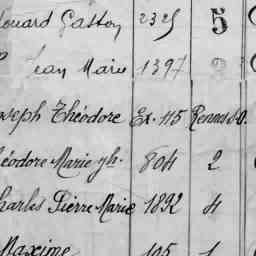 douard Gaston 2325 5
Jean Marie 1397 2
oseph Théodore Ex. 115 Rennes S.O.
éodore Marie jh. 804 2
harles Pierre Marie 1892 4
Maxime 105 1